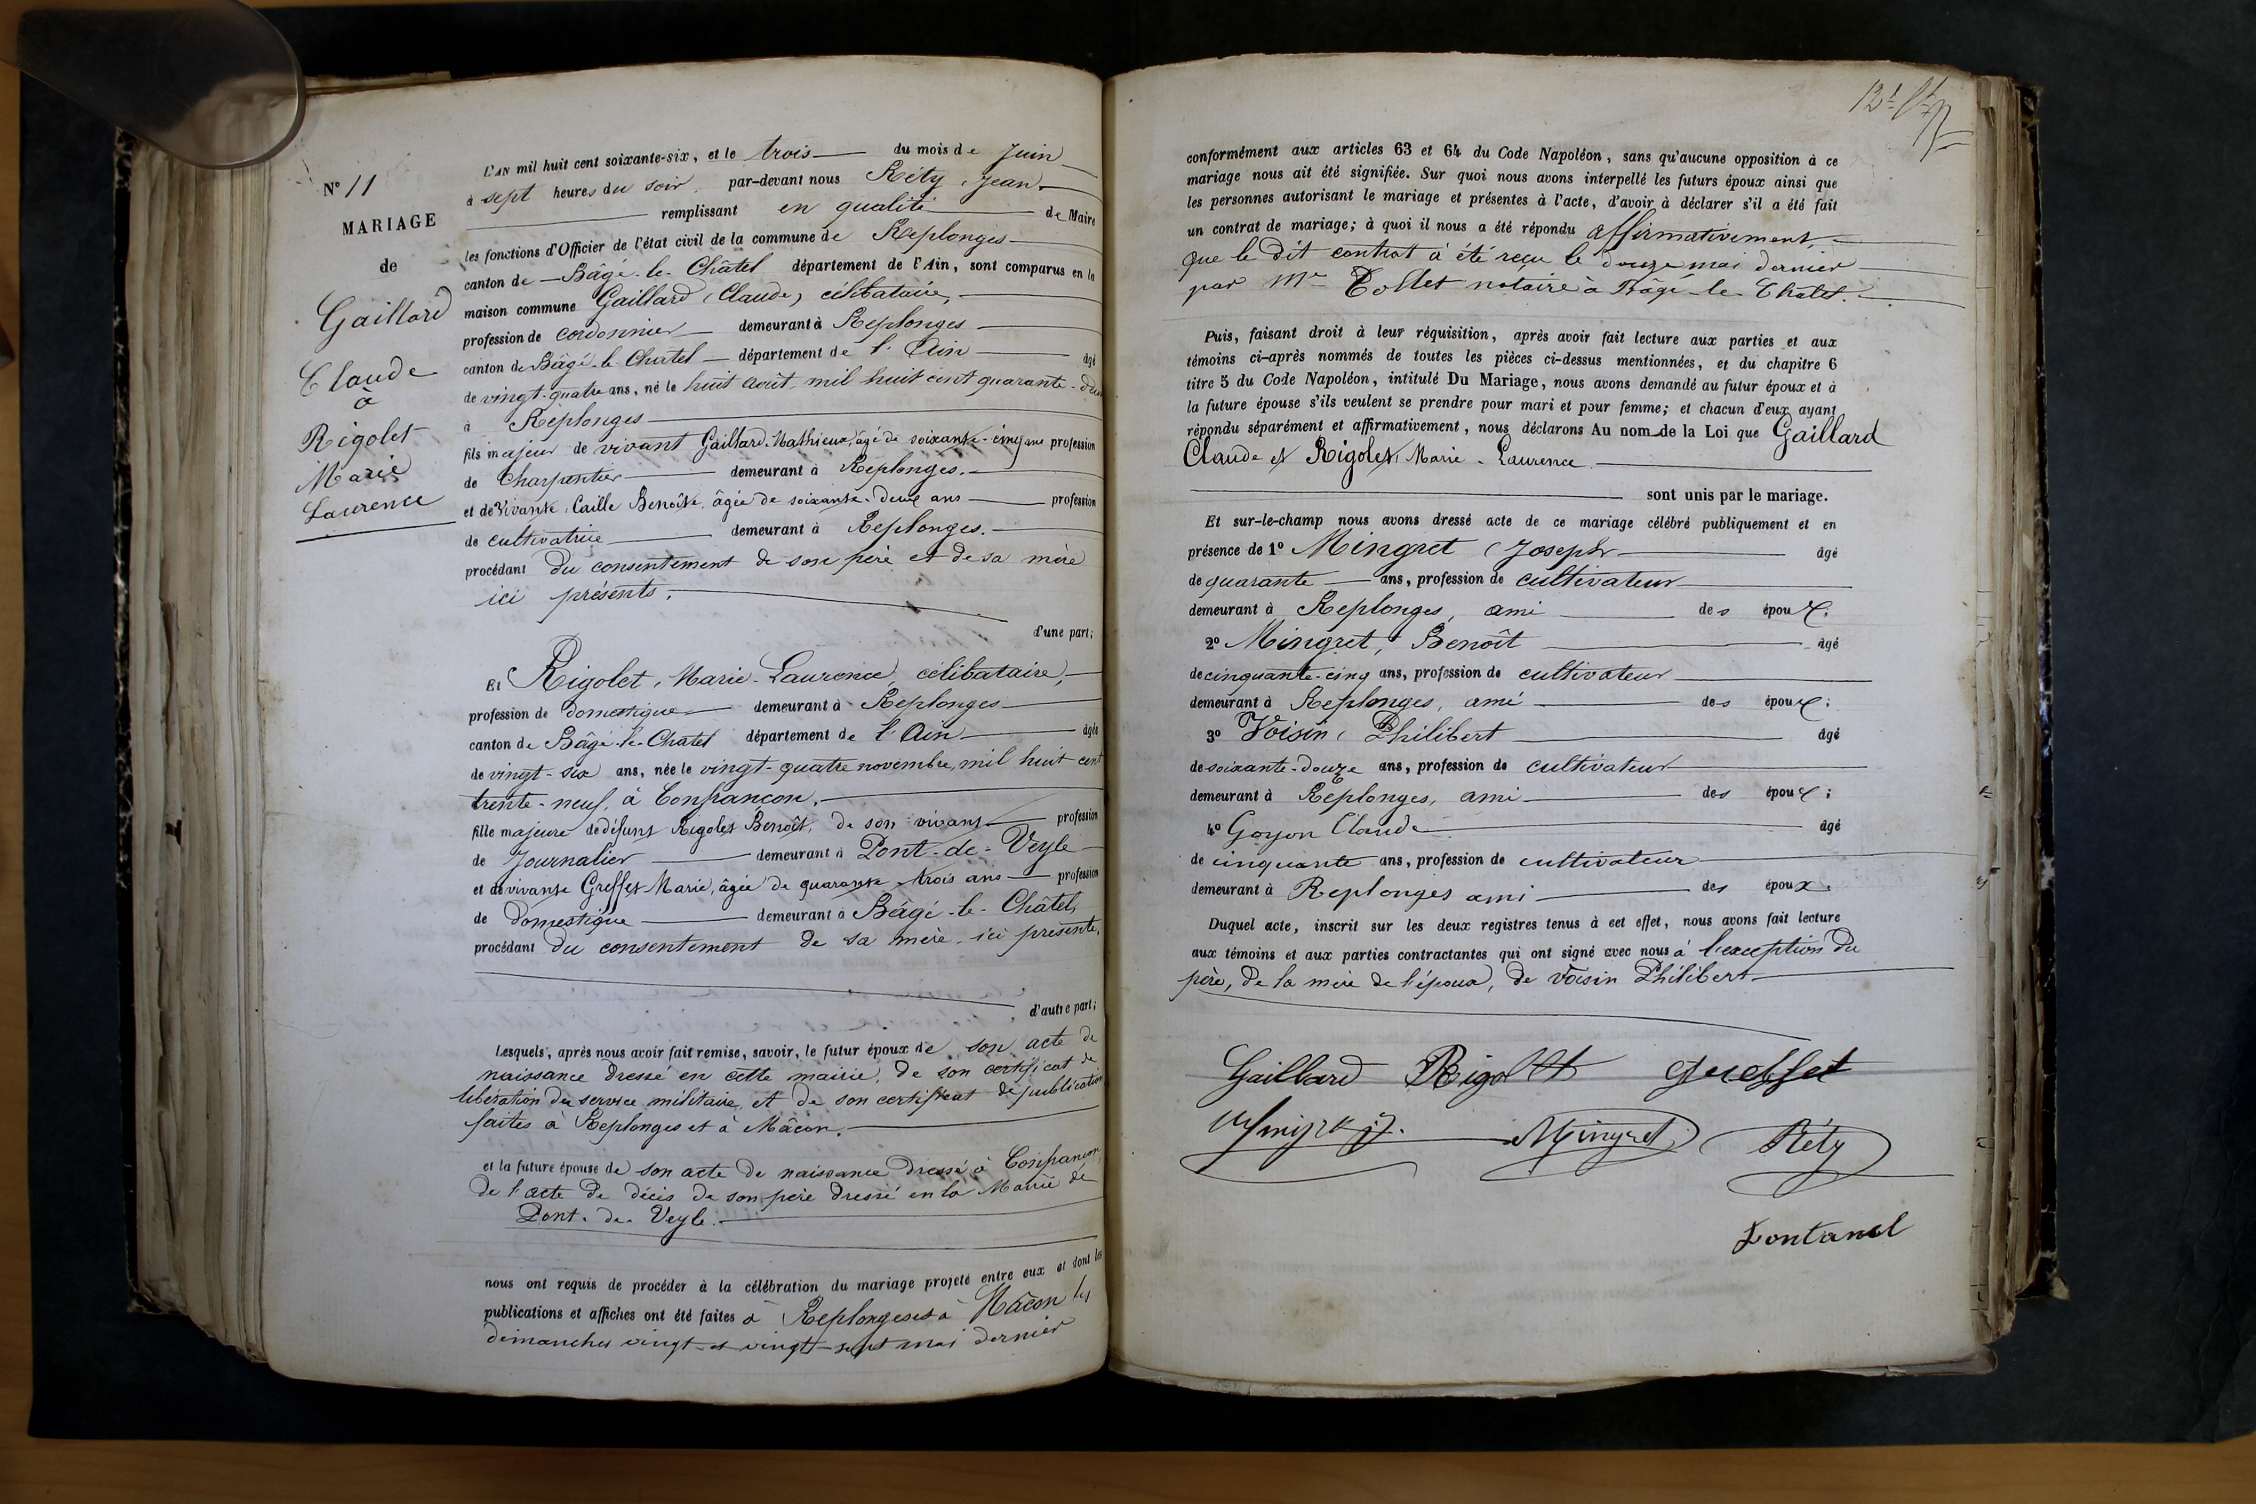 N° 11
MARIAGE
de
Gaillard
Claude
a
Rigolet
Marie
Laurence
L'AN mil huit cent soixante-six, et le trois du mois de Juin
à sept heures du soir, par-devant nous Réty, Jean.
remplissant en qualité de Maire
les fonctions d'Officier de l'état civil de la commune de Replonges
canton de Bâgé-le-Châtel département de l'Ain, sont comparus en la
maison commune Gaillard, Claude, célibataire,
profession de cordonnier demeurant à Replonges
canton de Bâgé-le-Chatel département de l'Ain âgé
de vingt-quatre ans, né le huit août mil huit cent quarante-deux
à Replonges
fils majeur de vivant Gaillard Mathieux, âgé de soixante-cinq ans profession
de Charpentier demeurant à Replonges.
et de vivante Caille Benoîte, âgée de soixante-deux ans profession
de cultivatrice demeurant à Replonges.
procédant du consentement de son père et de sa mère
ici présents,
d'une part;
Et Rigolet, Marie-Laurence, célibataire,
profession de domestique demeurant à Replonges
canton de Bâgé-le-Chatel département de l'Ain âgée
de vingt-six ans, née le vingt-quatre novembre, mil huit cent
trente-neuf, à Confrançon.
fille majeure de défunt Rigolet Benoît, de son vivant profession
de Journalier demeurant à Pont-de-Veyle
et de vivante Greffet Marie, âgée de quarante-trois ans profession
de domestique demeurant à Bâgé-le-Châtel,
procédant du consentement de sa mère ici présente,
d'autre part;
Lesquels, après nous avoir fait remise, savoir, le futur époux de son acte de
naissance dressé en cette mairie, de son certificat de
libération du service militaire, et de son certificat de publication
faites à Replonges et à Mâcon.
et la future épouse de son acte de naissance dressé à Confrançon,
de l'acte de décès de son père dressé en la Mairie de
Pont-de-Veyle.
nous ont requis de procéder à la célébration du mariage projeté entre eux et dont les
publications et affiches ont été faites à Replonges et à Mâcon les
dimanches vingt et vingt-sept mai dernier
conformément aux articles 63 et 64 du Code Napoléon, sans qu'aucune opposition à ce
mariage nous ait été signifiée. Sur quoi nous avons interpellé les futurs époux ainsi que
les personnes autorisant le mariage et présentes à l'acte, d'avoir à déclarer s'il a été fait
un contrat de mariage; à quoi il nous a été répondu affirmativement,
que le dit contrat a été reçu le douze mai dernier
par Me notaire à Bâgé-le-Châtel.
Puis, faisant droit à leur réquisition, après avoir fait lecture aux parties et aux
témoins ci-après nommés de toutes les pièces ci-dessus mentionnées, et du chapitre 6
titre 5 du Code Napoléon, intitulé Du Mariage, nous avons demandé au futur époux et à
la future épouse s'ils veulent se prendre pour mari et pour femme; et chacun d'eux ayant
répondu séparément et affirmativement, nous déclarons Au nom de la Loi que Gaillard
Claude et Rigolet, Marie-Laurence
sont unis par le mariage.
Et sur-le-champ nous avons dressé acte de ce mariage célébré publiquement et en
présence de 1° Mingret, Joseph âgé
de quarante ans, profession de cultivateur
demeurant à Replonges, ami des époux.
2° Mingret, Benoît âgé
de cinquante-cinq ans, profession de cultivateur
demeurant à Replonges, ami des époux;
3° Voisin, Philibert âgé
de soixante-douze ans, profession de cultivateur
demeurant à Replonges, ami des époux;
4° Goyon Claude âgé
de cinquante ans, profession de cultivateur
demeurant à Replonges ami des époux.
Duquel acte, inscrit sur les deux registres tenus à cet effet, nous avons fait lecture
aux témoins et aux parties contractantes qui ont signé avec nous à l'exception du
père, de la mère de l'époux, de Voisin Philibert
Gaillard Rigolet Greffet
Mingret Réty
Fontanel